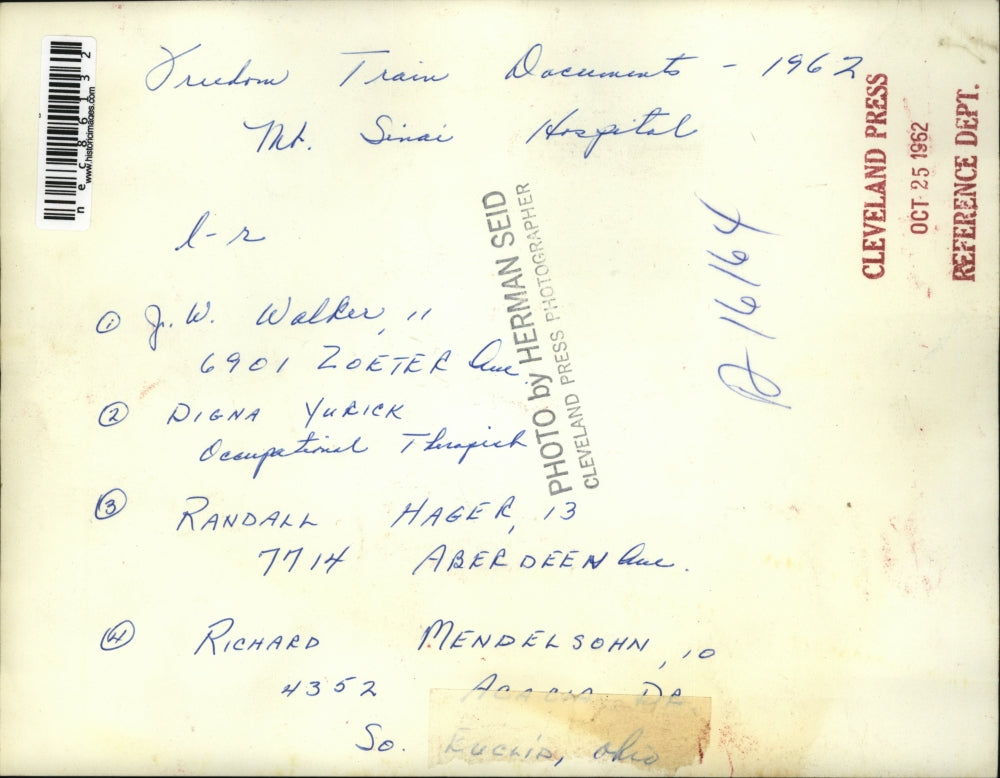 Freedom Train Documents - 1962
Mt. Sinai Hospital
l-r
① J. W. Walker, 11
6901 ZOETER Ave.
② DIGNA YURICK
Occupational Therapist
③ RANDALL HAGER, 13
7714 ABERDEEN Ave.
④ RICHARD MENDELSOHN, 10
4352 ACACIA DR.
So. EUCLID, Ohio
PHOTO by HERMAN SEID
CLEVELAND PRESS PHOTOGRAPHER
16164
CLEVELAND PRESS
OCT 25 1962
REFERENCE DEPT.
nec86132
www.historicimages.com